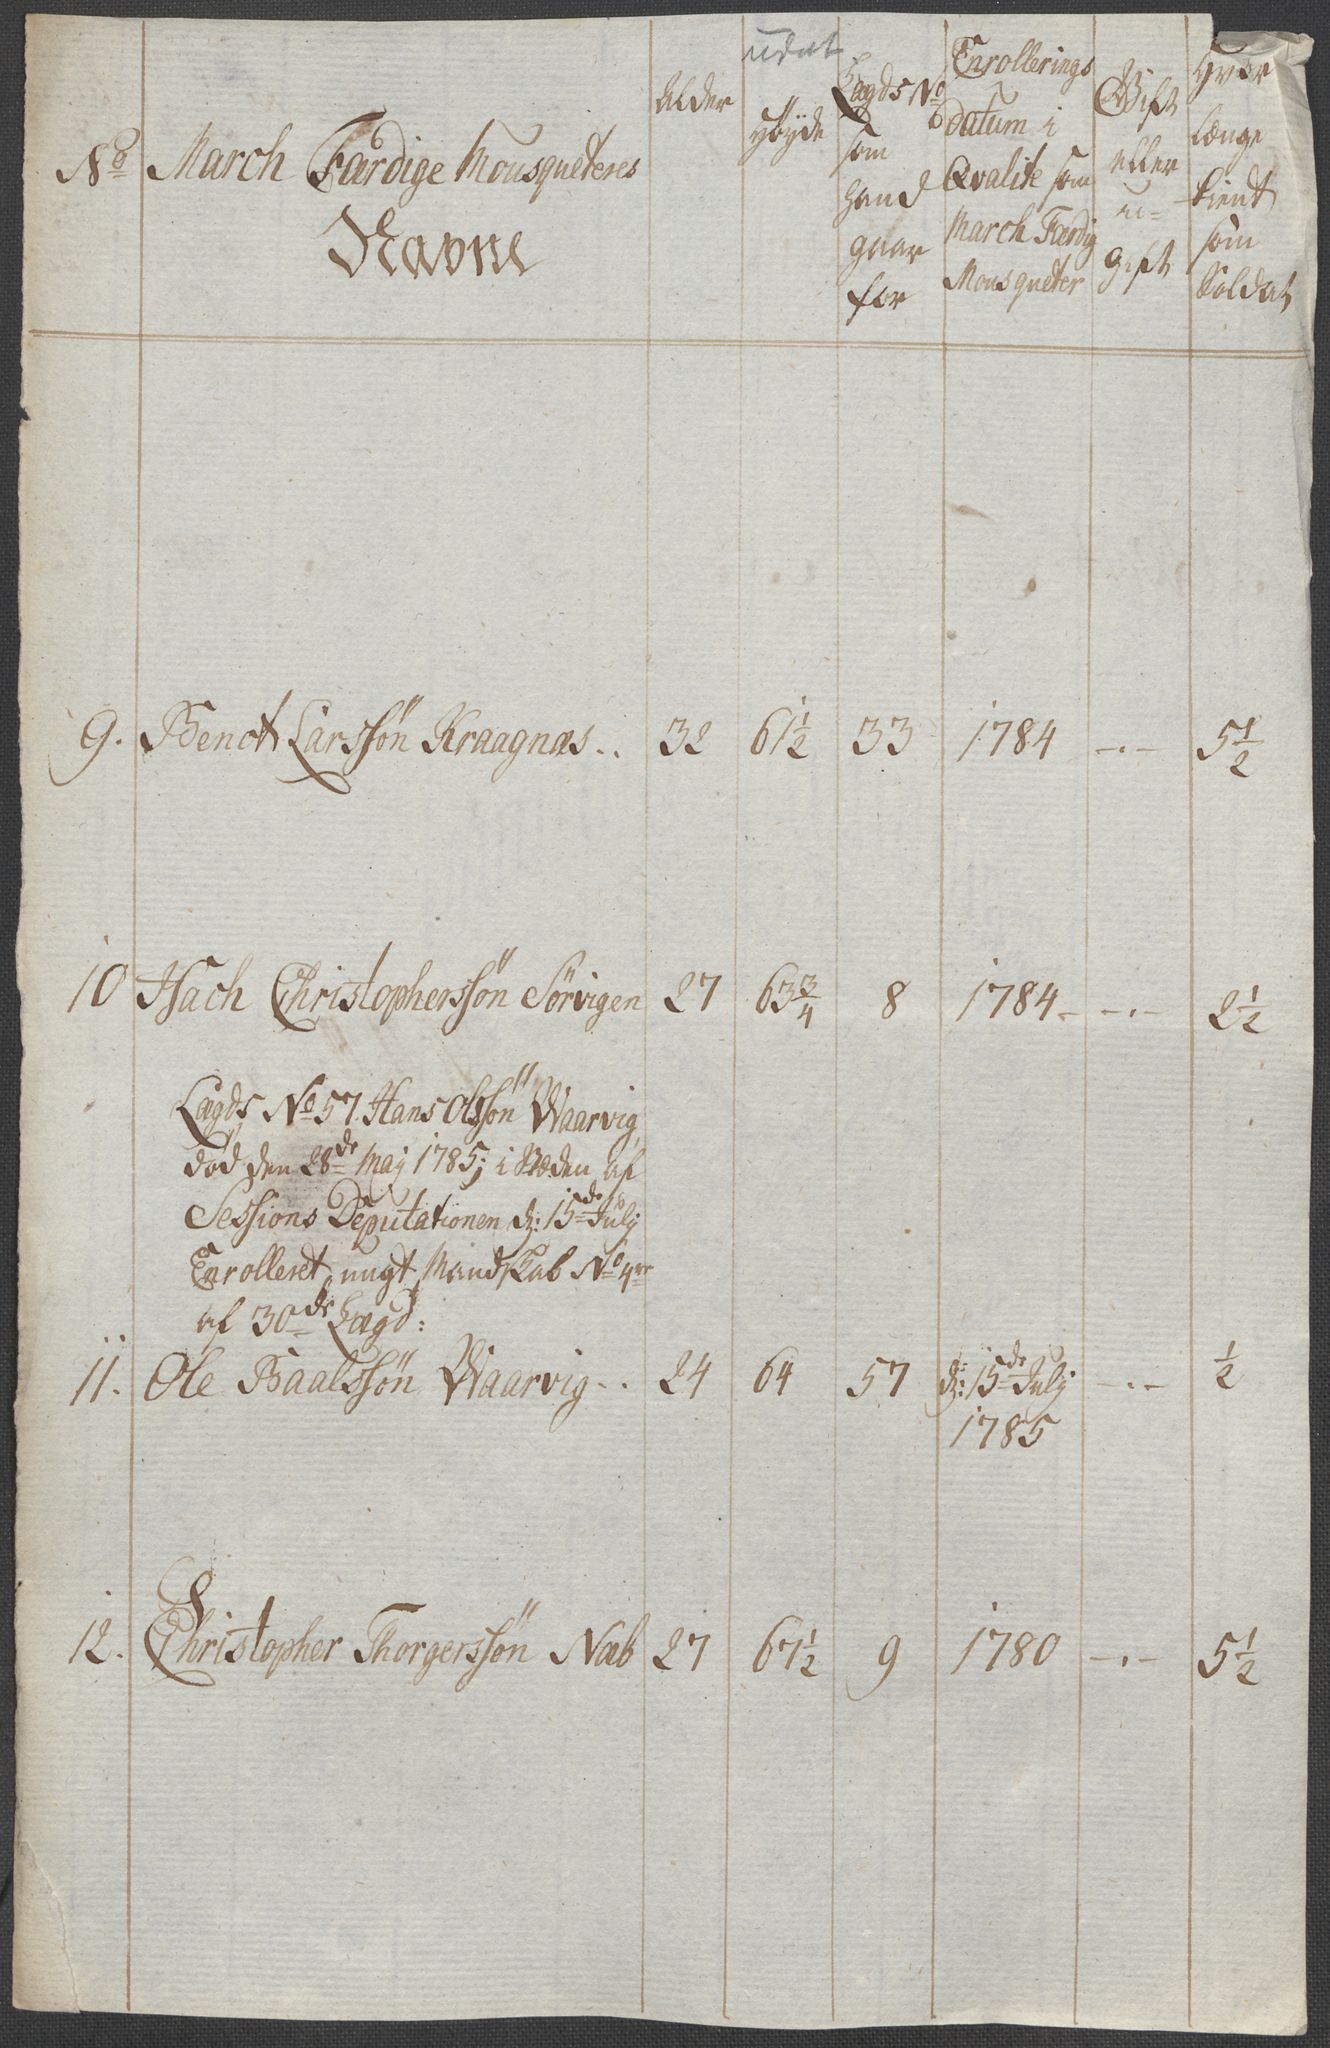 udat
No March Færdige Mousqueteres Navne
Alder
Høyde
Lægds No som hand gaar for
Enrollerings datum i Qvalite som March Færdig Mousqueter
Gift eller u= gift
Hvor længe tient som Soldat
9. Benct Larssøn Kraagnæs .. 32 61 1/2 33 1784 -.- 5 1/2
10 Isach Christopherssøn Sørvigen 27 63 3/4 8 1784 - -.- 2 1/2
Lægds No 57 Hans Olssøn Waarvig
død den 28de Maj 1785; i Stæden af
Sessions Deputationen d: 15de Julij
Enrolleret, ungt Mandskab No 4re
af 30de Lægd:
11. Ole Baalssøn Waarvig .. 24 64 57 d: 15de Julij -.- 1/2
1785
12. Christopher Thorgerssøn Næb 27 67 1/2 9 1780 -.- 5 1/2